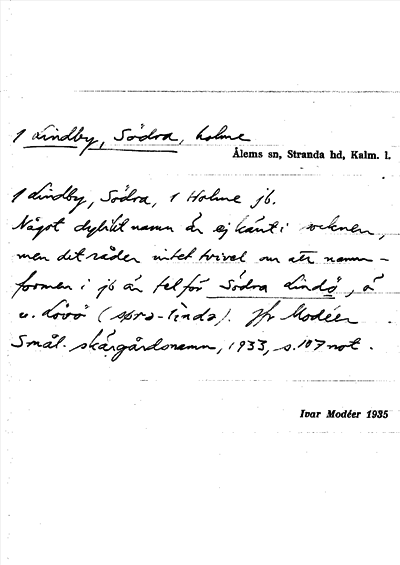 1 Lindby, Södra, holme
Ålems sn, Stranda hd, Kalm. l.
1 Lindby, Södra, 1 Holme jb.
Något dylikt namn är ej känt i socknen,
men det råder intet tvivel om att namn-
formen i jb är fel för Södra Lindö, ö
v. Lövö ( -linda). Jfr Modéer
Smål. skärgårdsnamn, 1933, s. 107 not.
Ivar Modéer 1935